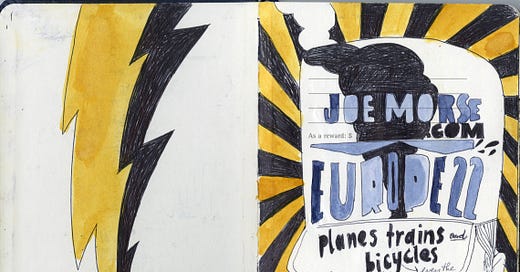 JOE MORSE
.COM
As a reward: $
EUROPE 22
planes trains and
bicycles